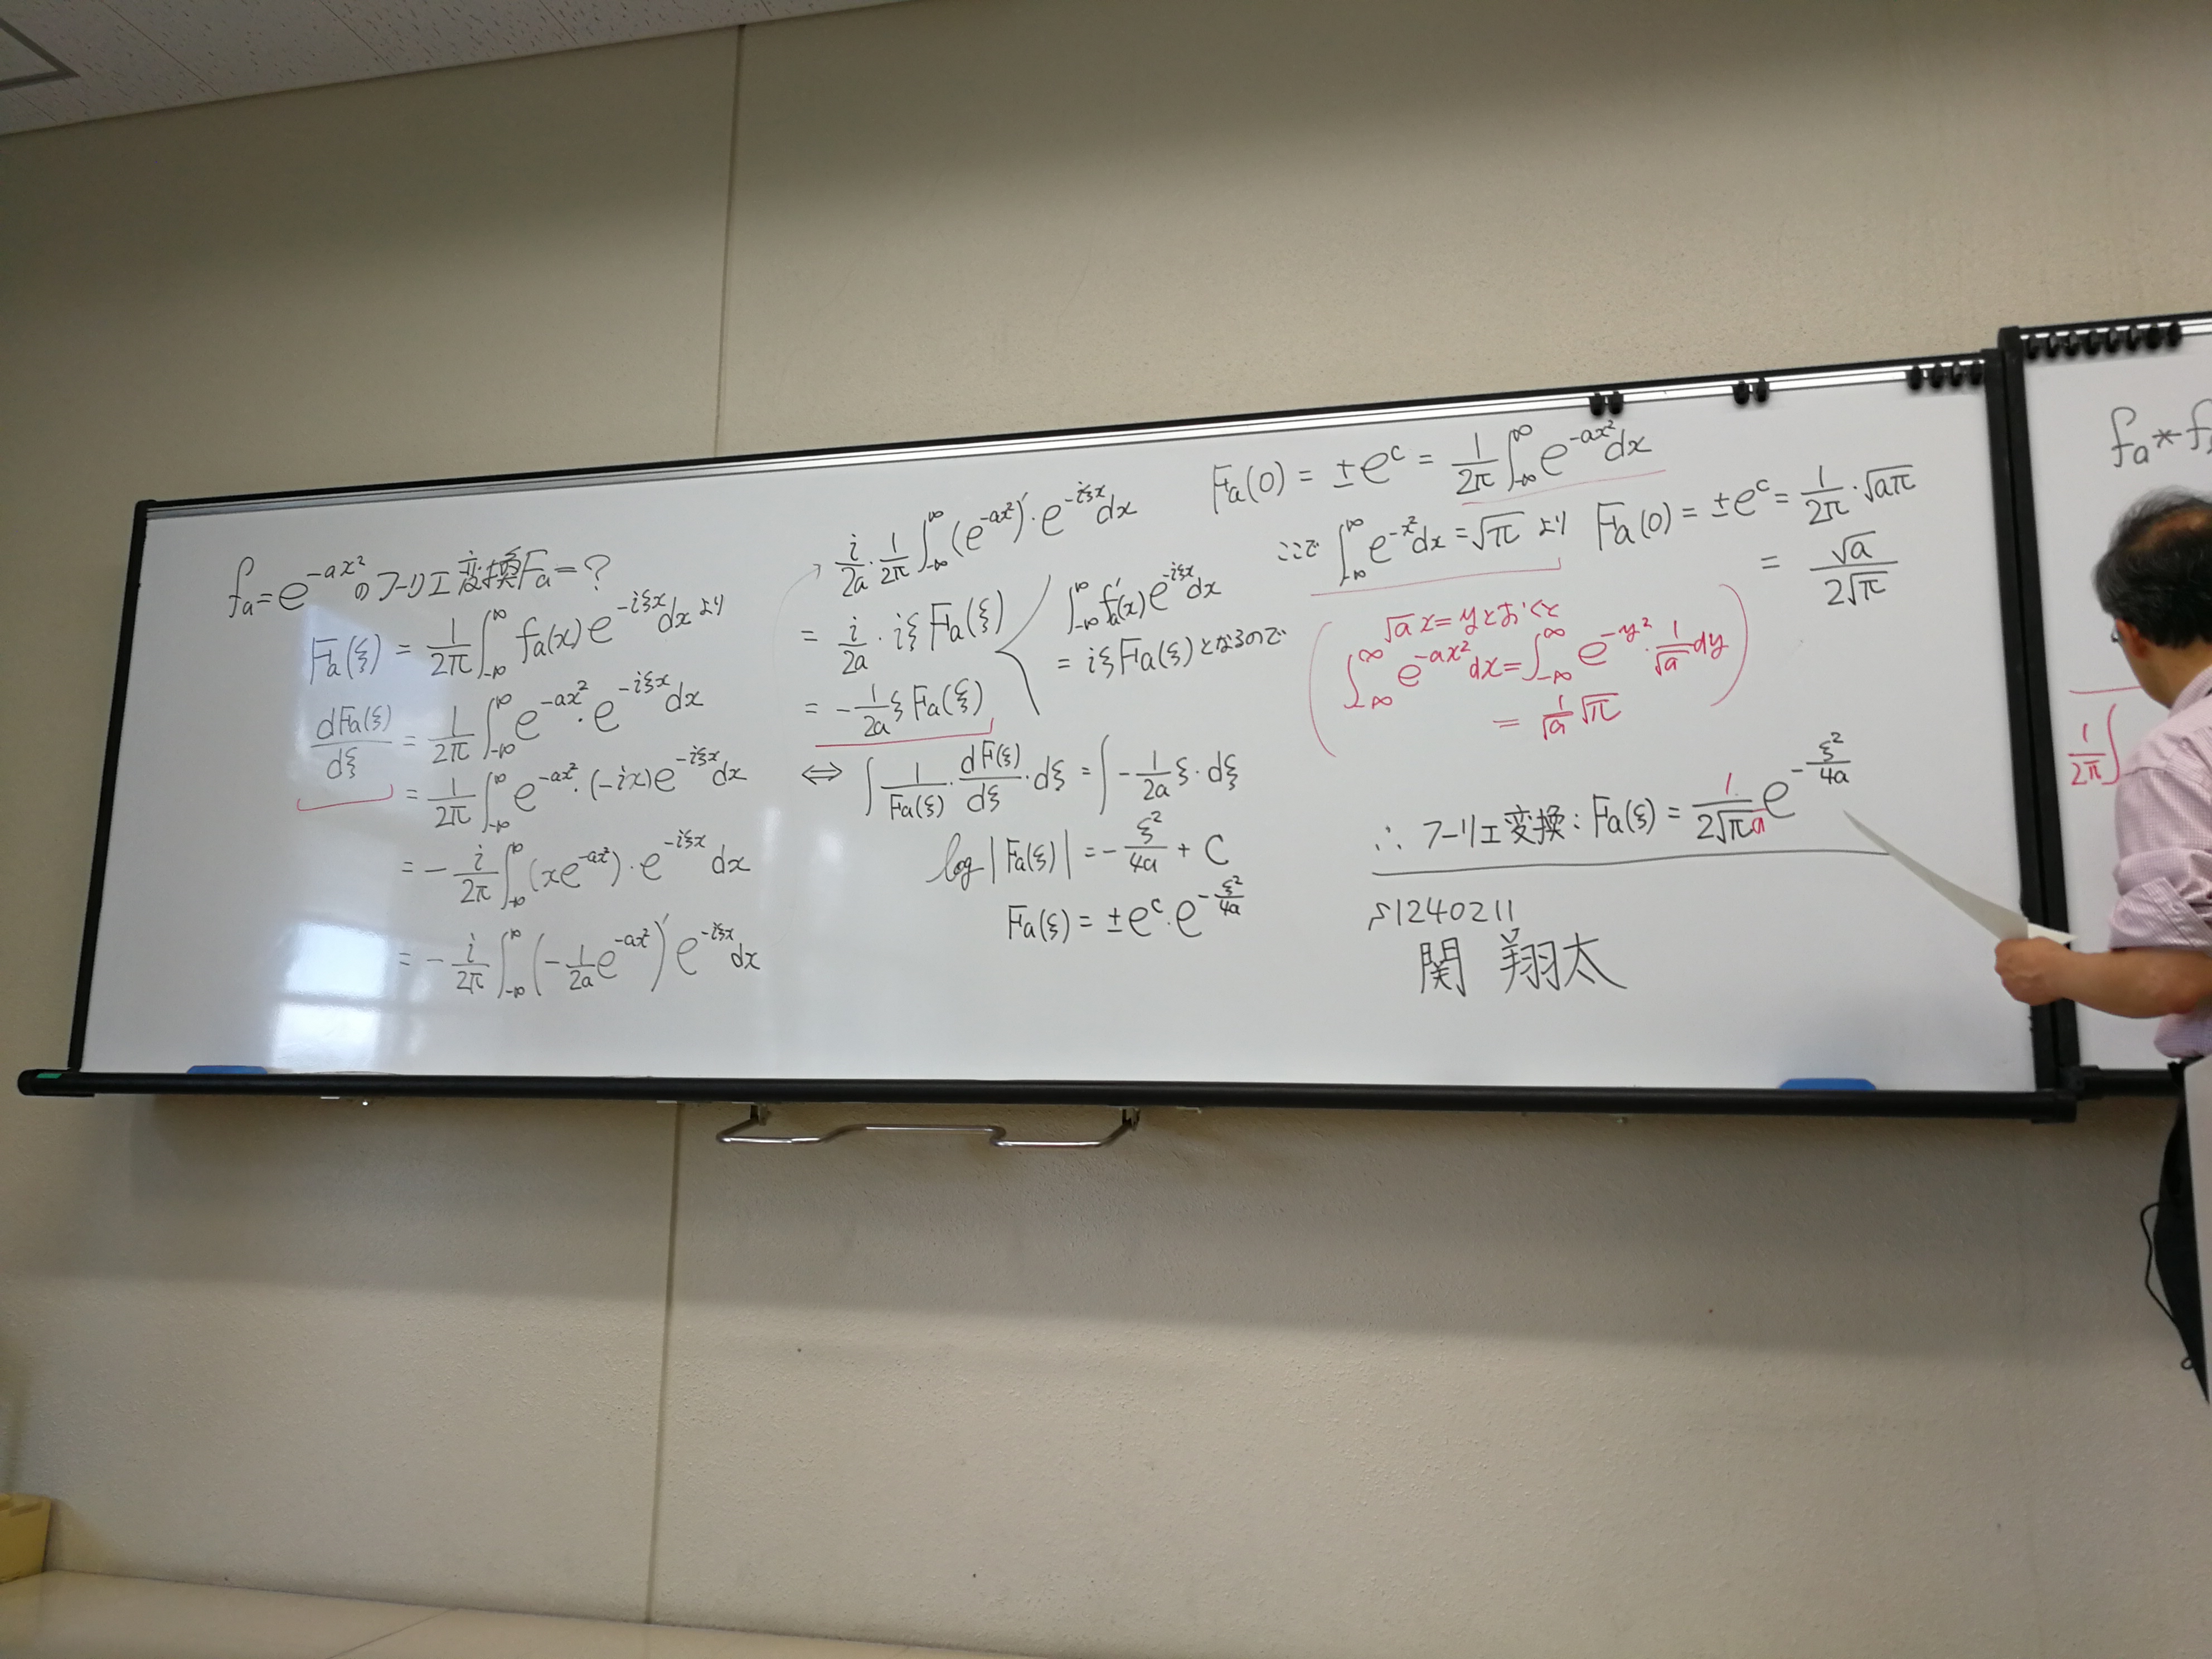 fa=e^{-ax²}のフーリエ変換Fa=?
Fa(ξ) = 1/2π ∫_{-∞}^{∞} fa(x)e^{-iξx}dxより
dFa(ξ)/dξ = 1/2π ∫_{-∞}^{∞} e^{-ax²}・e^{-iξx}dx
= 1/2π ∫_{-∞}^{∞} e^{-ax²}・(-ix)e^{-iξx}dx
= - i/2π ∫_{-∞}^{∞} (xe^{-ax²})・e^{-iξx}dx
= - i/2π ∫_{-∞}^{∞} (-1/2a e^{-ax²})' e^{-iξx}dx
i/2a・1/2π ∫_{-∞}^{∞} (e^{-ax²})'・e^{-iξx}dx
= i/2a・iξFa(ξ)
∫_{-∞}^{∞} f'a(x)e^{-iξx}dx
= iξFa(ξ)となるので
= -1/2a ξFa(ξ)
⇔ ∫ 1/Fa(ξ)・dF(ξ)/dξ・dξ = ∫ -1/2a ξ・dξ
log|Fa(ξ)| = -ξ²/4a + C
Fa(ξ) = ±e^c・e^{-ξ²/4a}
Fa(0) = ±e^c = 1/2π ∫_{-∞}^{∞} e^{-ax²}dx
ここで ∫_{-∞}^{∞} e^{-x²}dx = √π より Fa(0) = ±e^c = 1/2π・√aπ
= √a/2√π
√a x = yとおくと
∫_{-∞}^{∞} e^{-ax²}dx = ∫_{-∞}^{∞} e^{-y²}・1/√a dy
= 1/√a √π
∴ フーリエ変換: Fa(ξ) = 1/2√πa e^{-ξ²/4a}
S1240211
関 翔太
fa*f
1/2π ∫